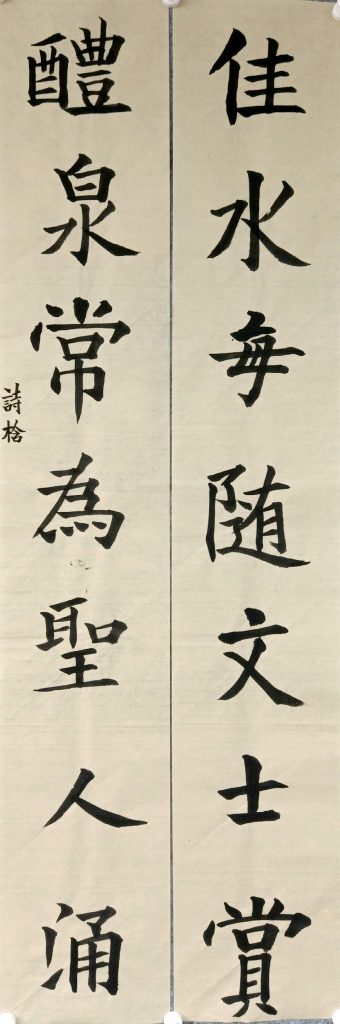 佳水每随文士賞
醴泉常為聖人涌
詩桧